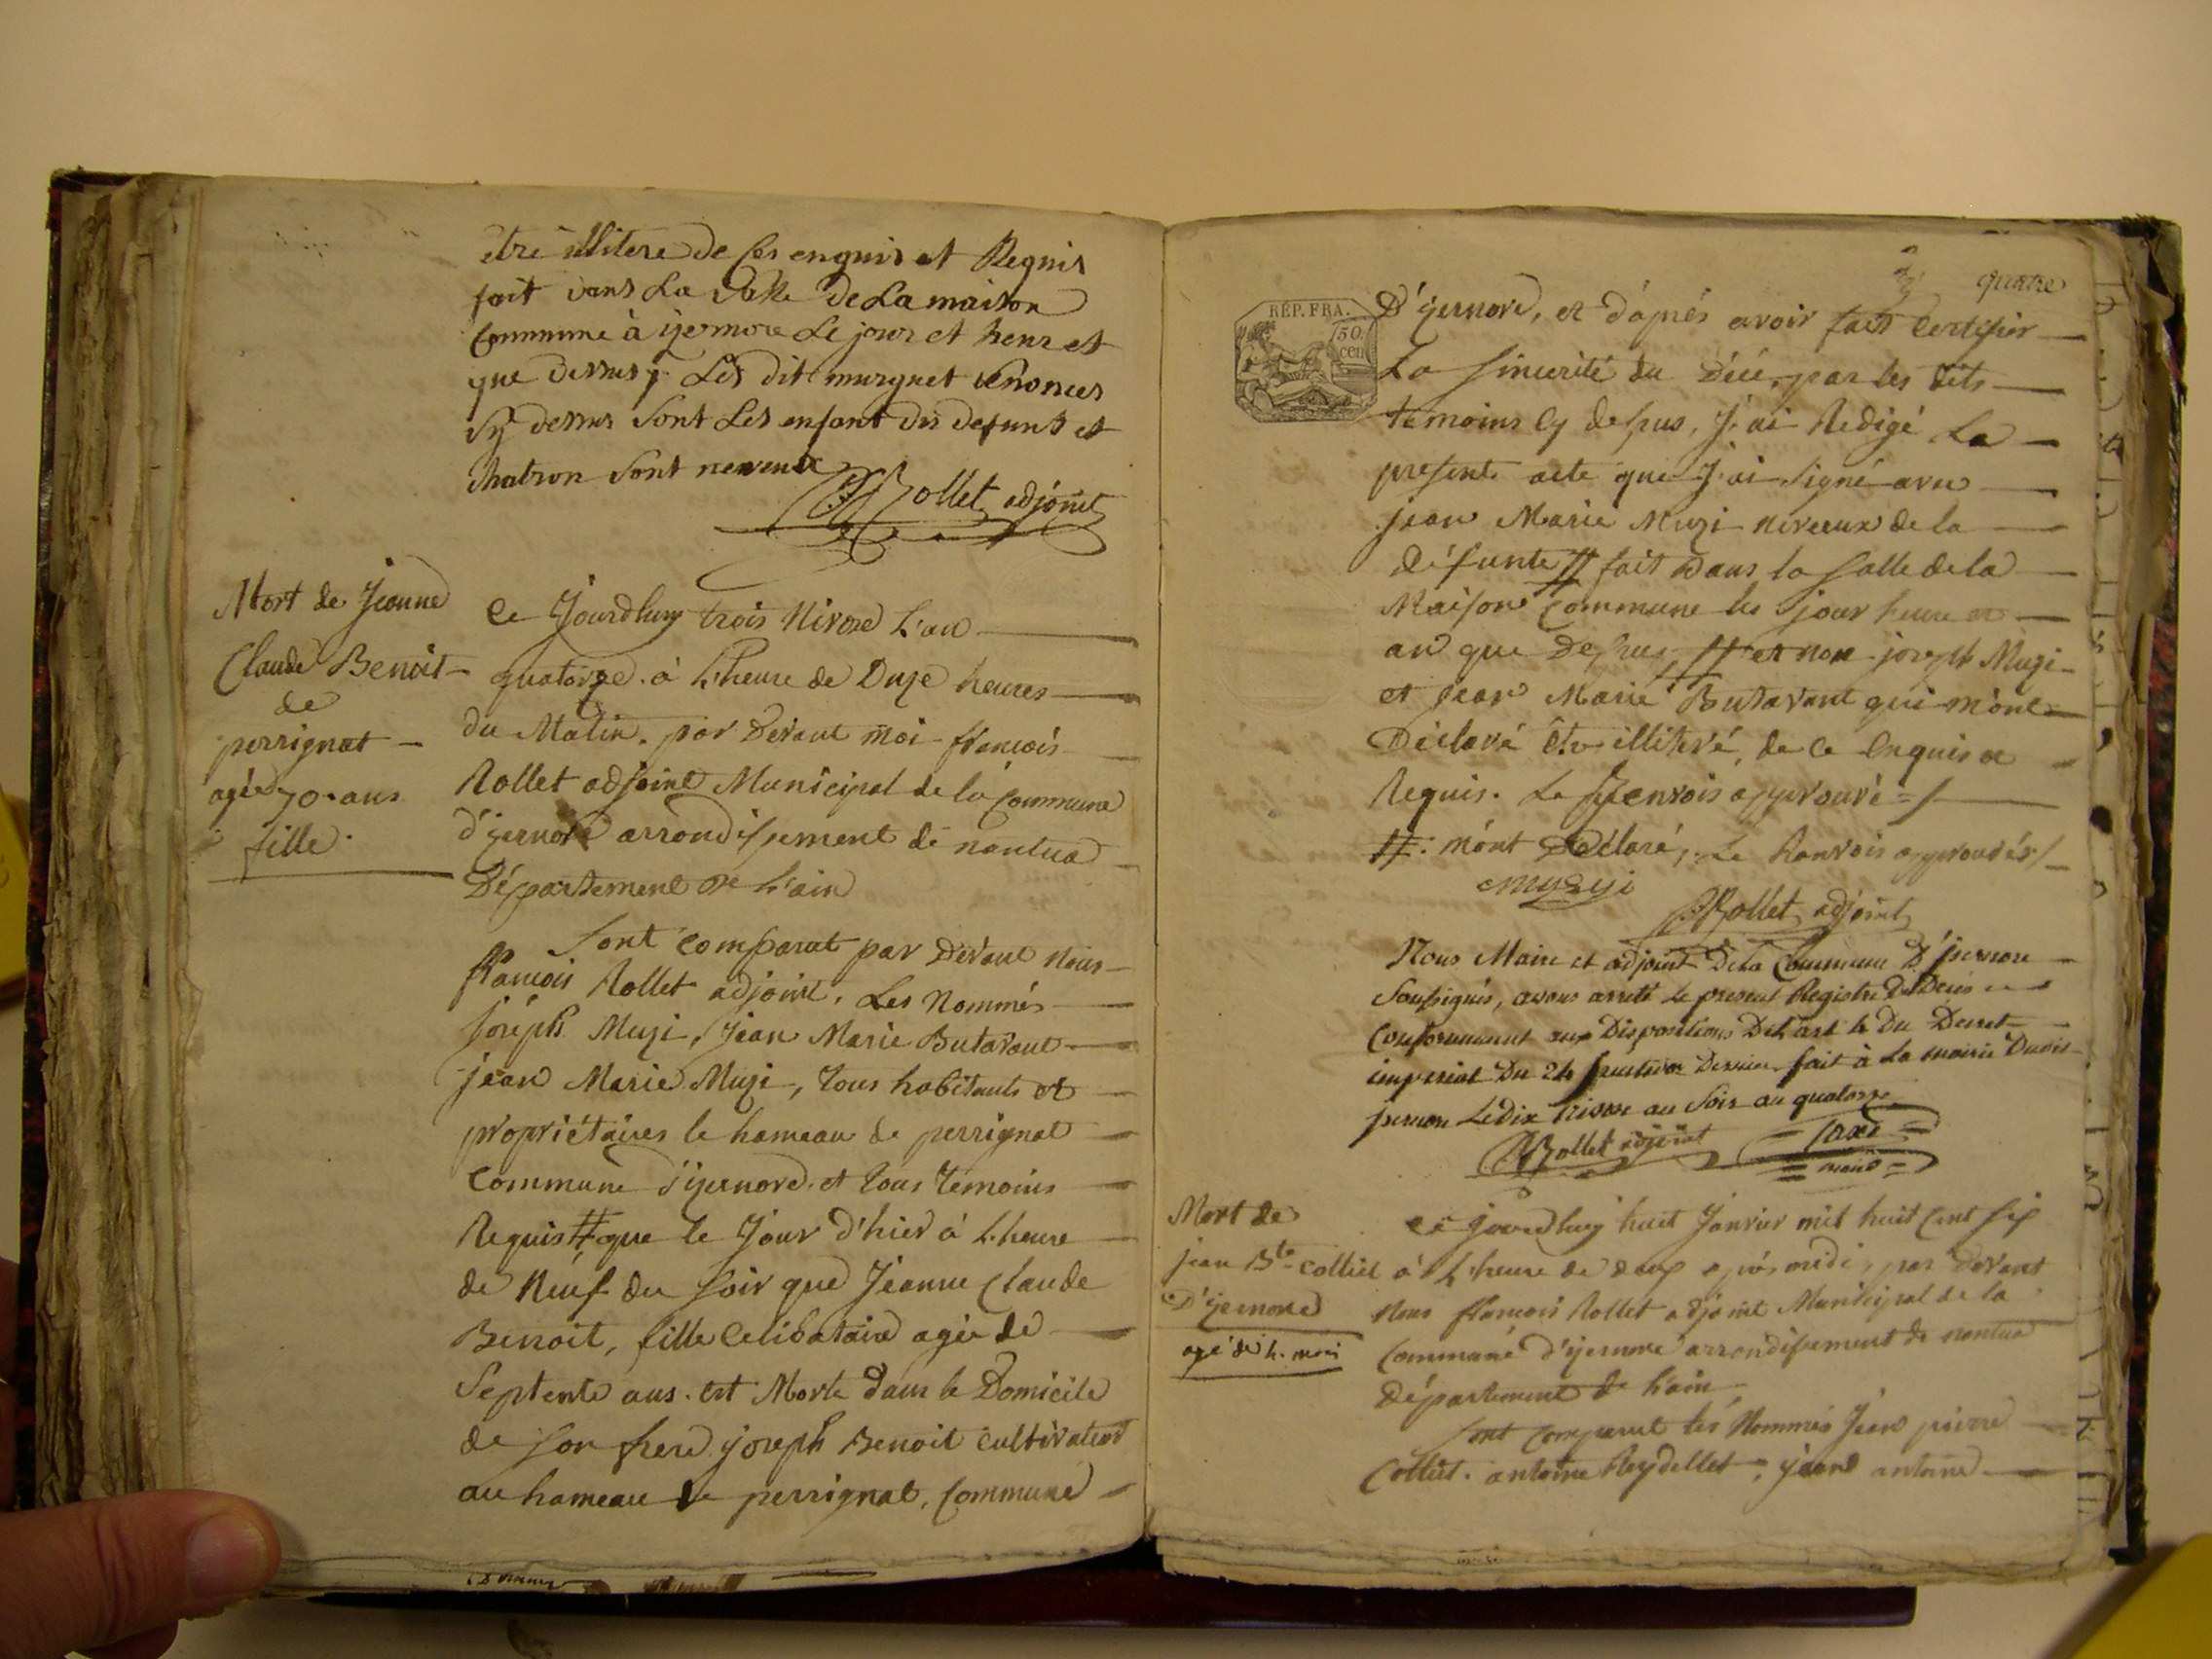 etre illitere de Ces enquis et Requis
fait dans La Salle De La maison
Commune à iyernore Le jour et heur et
que dessus Les dit murguet
Sy dessus Sont Les enfant du defunt et
Chatron Sont neveux
Rollet adjoint
Mort de Jeanne
Claude Benoit
de
perrignat
agée 70. ans
fille.
Ce Jourdhuy trois Nivose L'an
quatorze. à L'heure de Onze heures
du Matin. par Devant moi francois
Rollet adjoint Municipal de la Commune
d'yernore arrondissement de nantua
Département de L'ain
Sont comparut par Devant Nous
francois Rollet adjoint, Les Nommés
Joseph Muzi, Jean Marie Butavant
jean Marie Muzi, tous habitants et
propriétaires le hameau de perrignat
Commune d'yernore. et tous temoins
Requis # que le Jour d'hier à L'heure
de Neuf du Soir que Jeanne Claude
Benoit, fille Celibataire agée de
Septente ans. est Morte dans le Domicile
de Son frere joseph Benoit Cultivateur
au hameau de perrignat, Commune
quatre
RÉP. FRA.
50
cen
D'yernore, et d'après avoir fait Certifier
La Sincerité du Décé, par les dits
temoins Cy dessus, J'ai Redigé La
presente acte que J'ai Signé avec
jean Marie Muzi neveeux de la
défunte # fait Dans la Salle de la
Maison Commune les jour heure et
an que Dessus, # et non joseph Muzi
et jean Marie Butavant qui m'ont
Déclaré être illiteré, de ce Enquis et
Requis. Le Renvois approuvé =/
#. m'ont Déclaré, Le Renvois
muzyi
Rollet adjoint
Nous Maire et adjoint De la Commune D'jsernore
Soussignés, avons arreté le present Registre De Décès
Conformement aux Dispositions De L'art Du Decret
imperial Du 24 fructidor Dernier. fait à La mairie
Le Dix Nivose au Soir an quatorze
Rollet adjoint
maire
Mort de
jean Bte Colliet
D'yernore
agé de 4. mois
Ce jourdhuy huit Janvier mil huit Cent Six
à L'heure de deux après midi, par Devant
Nous francois Rollet adjoint Municipal de la
Commune d'yernore arrondissement de nantua
Département de L'ain
Sont Comparut les Nommés Jean pierre
Colliet. antoine Reydellet, jean antoine